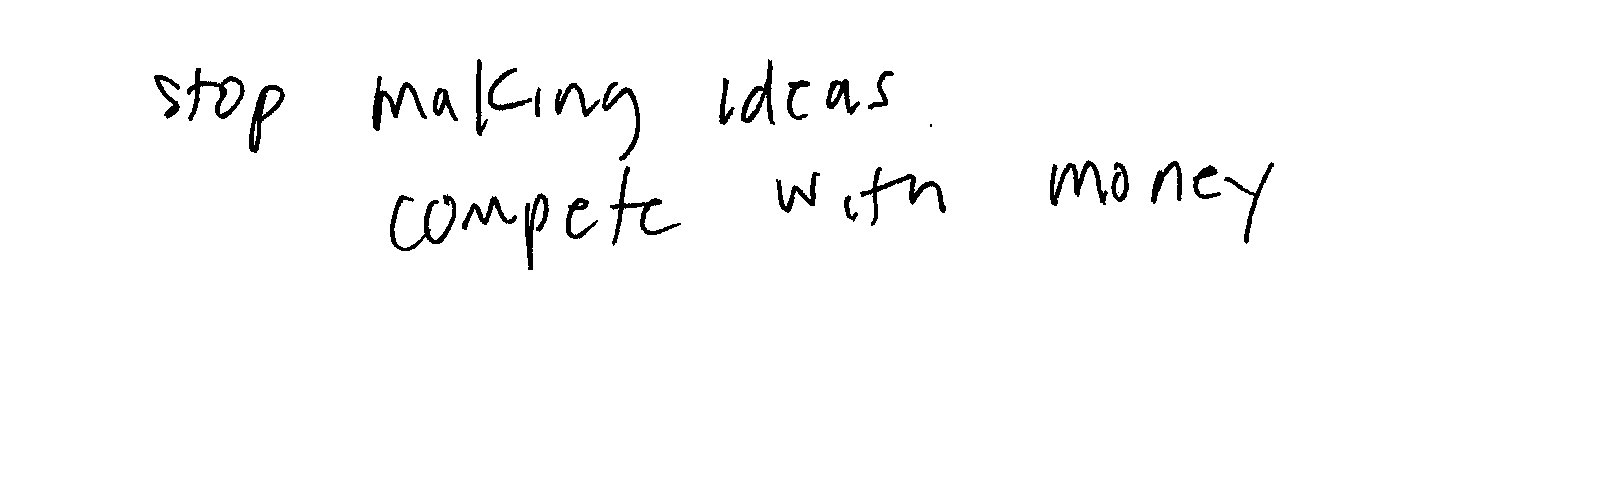 stop making ideas
compete with money